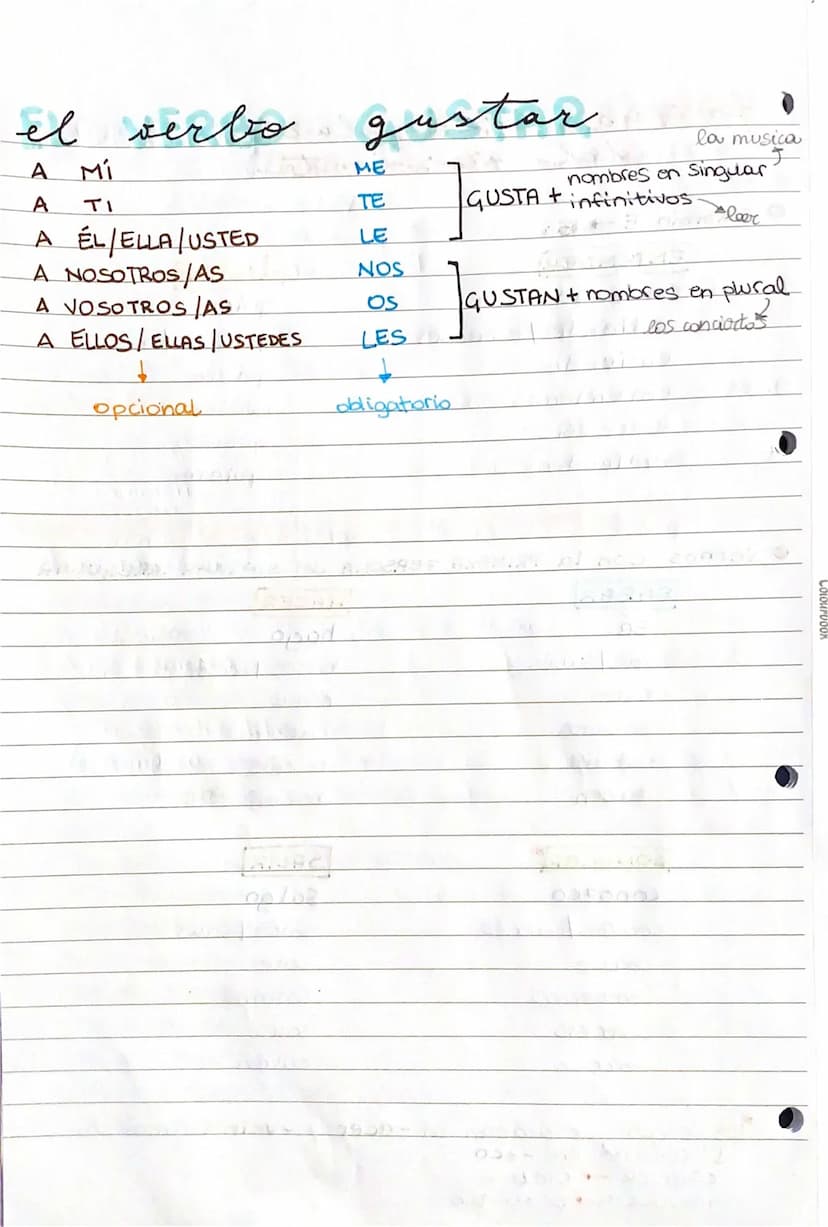 el verbo gustar
EL VERBO GUSTAR
la musica
A MÍ ME
nombres en singular
A TI TE GUSTA + infinitivos
leer
A ÉL/ELLA/USTED LE
A NOSOTROS/AS NOS
A VOSOTROS/AS OS GUSTAN + nombres en plural
los conciertos
A ELLOS/ELLAS/USTEDES LES
opcional obligatorio